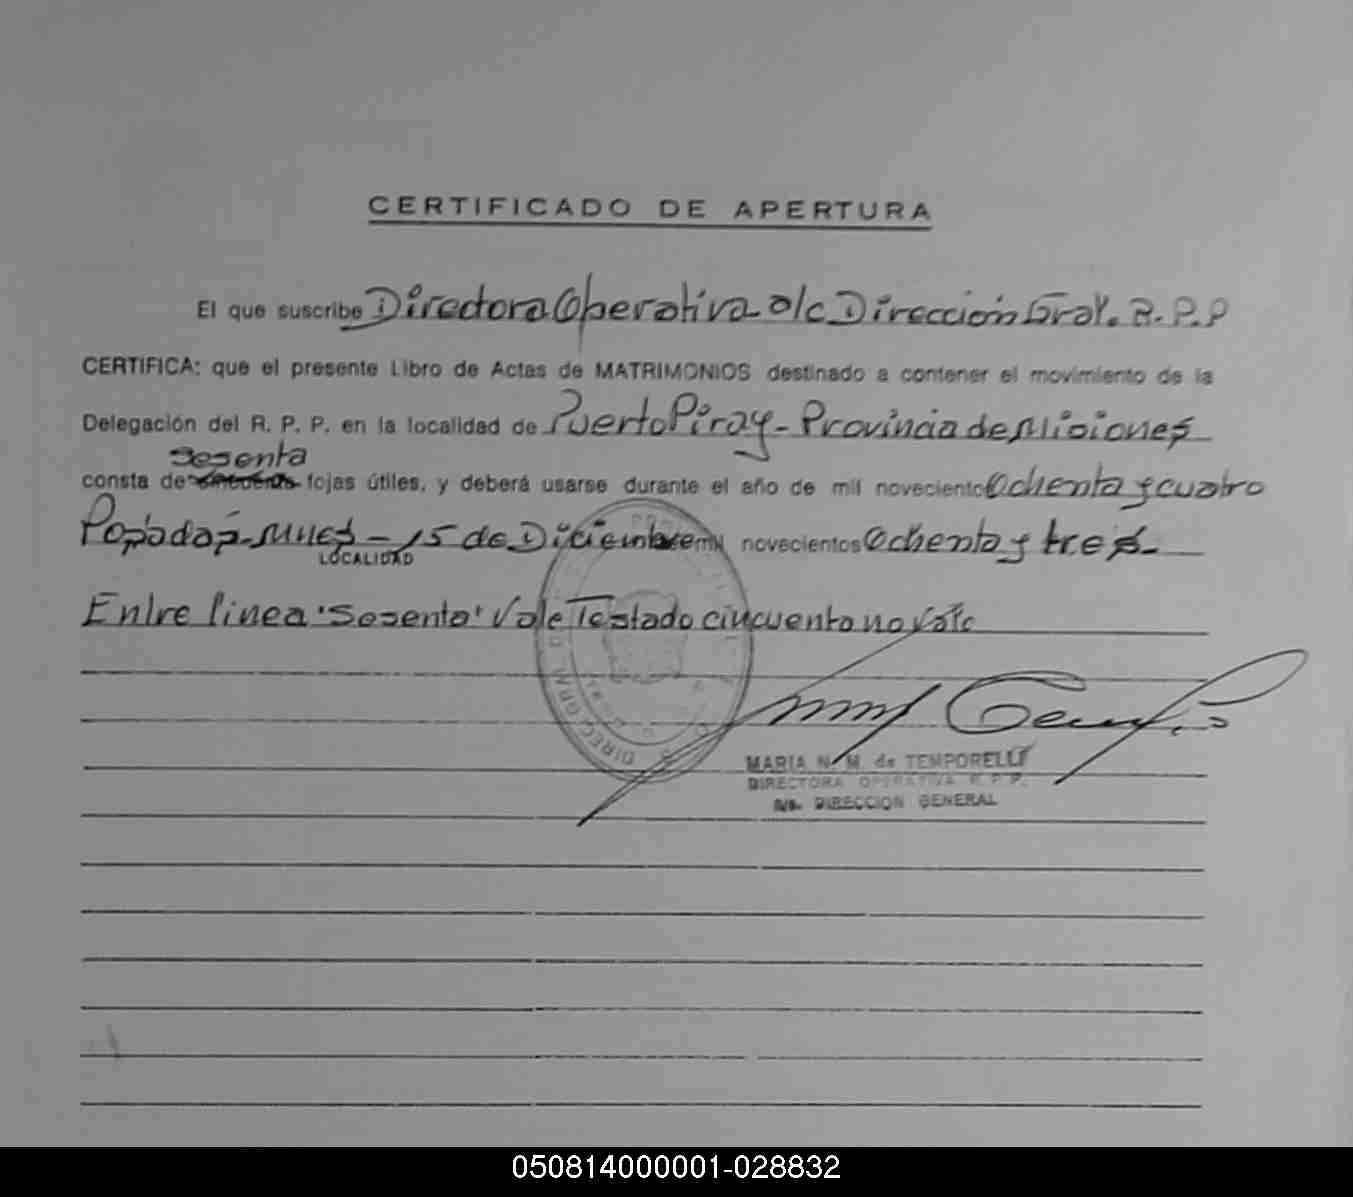 CERTIFICADO DE APERTURA
El que suscribe Directora Operativa a/c Dirección Gral. R.P.P
CERTIFICA: que el presente Libro de Actas de MATRIMONIOS destinado a contener el movimiento de la
Delegación del R. P. P. en la localidad de Puerto Piray - Provincia de Misiones
sesenta
consta de cincuenta fojas útiles, y deberá usarse durante el año de mil novecientos Ochenta y cuatro
Posadas - Mnes - 15 de Diciembre mil novecientos Ochenta y tres -
LOCALIDAD
Entre linea 'Sesenta' Vale Testado cincuenta no vale
MARIA N. M. de TEMPORELLI
DIRECTORA OPERATIVA R. P. P.
a/c. DIRECCION GENERAL
050814000001-028832